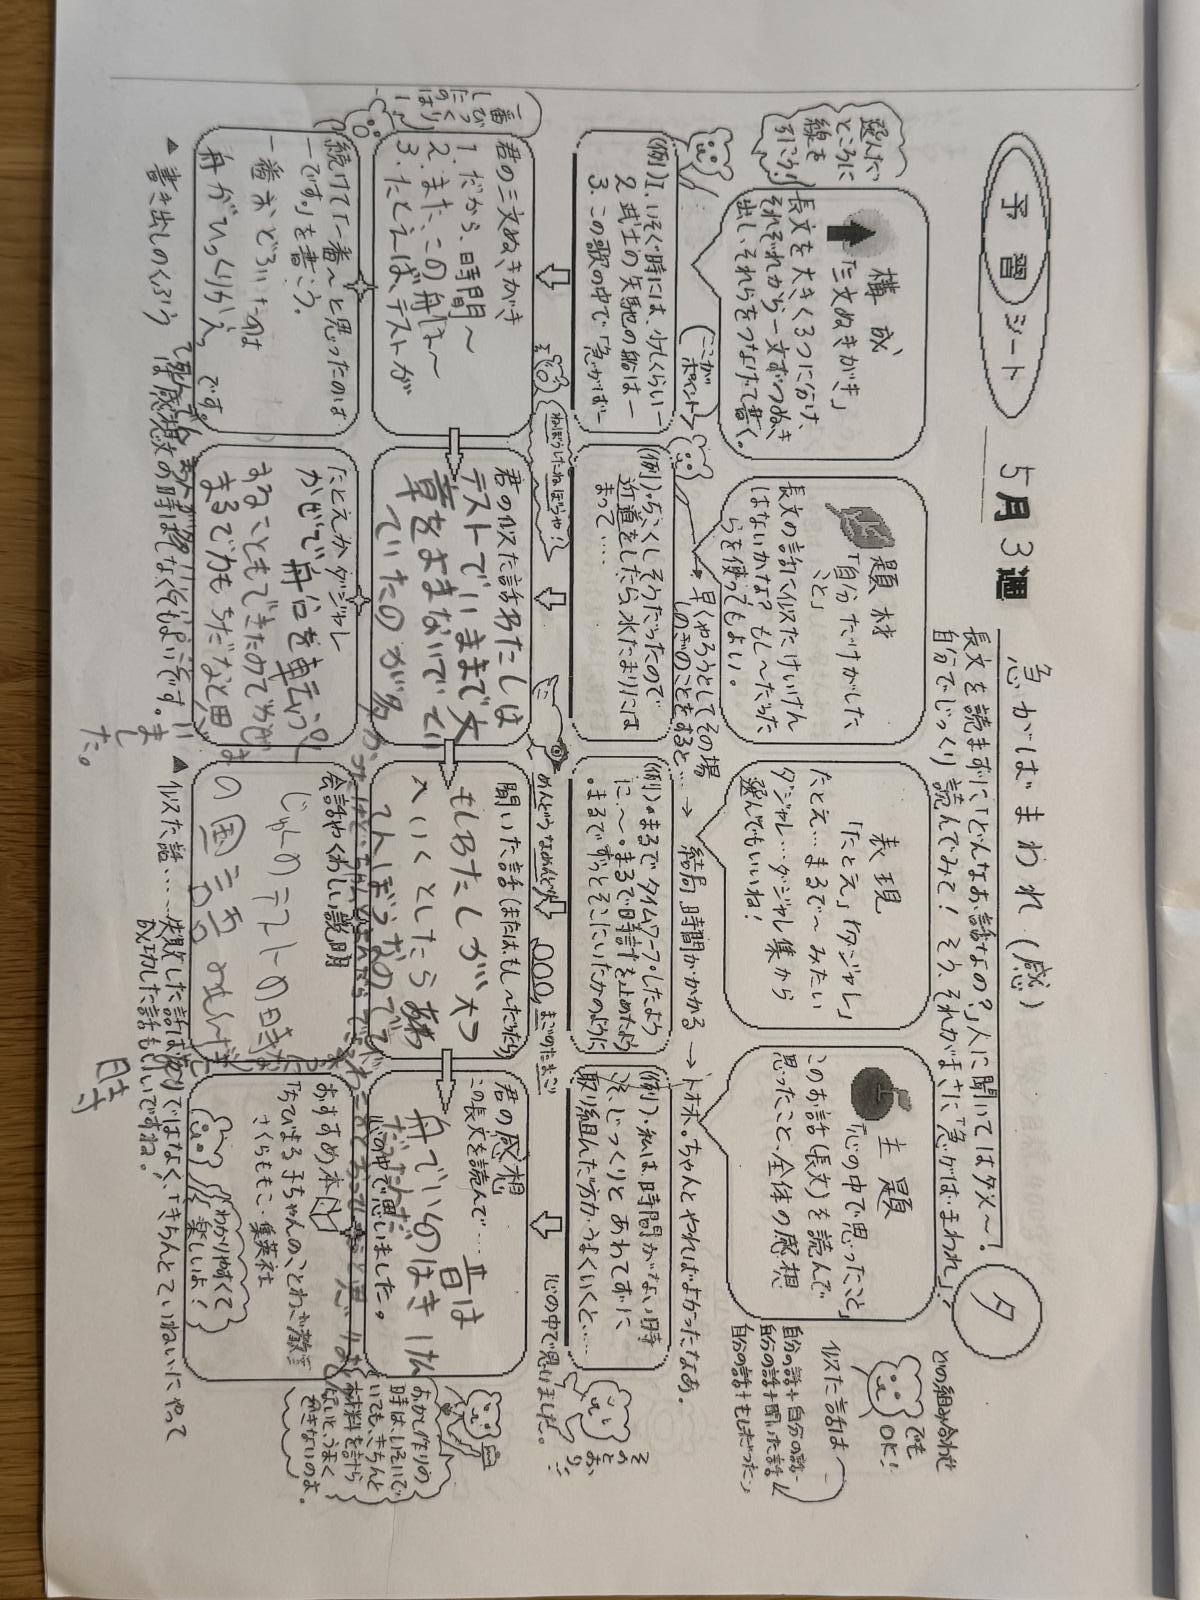 予習シート
5月3週
急がばまわれ(感)
タ
長文を読まずに「どんなお話なの?」人に聞いてはダメ〜!
自分でじっくり読んでみて! そう、それがまさに「急がばまわれ」?
選んだ
ところに
線を
引こう!
構成
「三文ぬきがき」
長文を大きく3つに分け、
それぞれから一文ずつぬき
出し、それらをつなげて書く。
題材
「自分だけがした
こと」
長文の話に似たけいけん
はないかな?もし〜だった
らを使ってもよい。
表現
「たとえ」「ダジャレ」
たとえ…まるで〜みたい
ダジャレ…ダジャレ集から
選んでもいいね!
主題
「心の中で思ったこと」
このお話(長文)を読んで
思ったこと、全体の感想
どの組み合わせ
でも
OK!
似た話は〜
自分の話+自分の話
自分の話+聞いた話
自分の話+もしだったら
ここが
ポイント
早くやろうとしてその場
しのぎのことをすると…
→ 結局、時間がかかる → トホホ。ちゃんとやればよかったなあ。
(例)1. いそぐ時には、少しくらいー
2. 武士の矢馳の船はー
3. この歌の中で「急がばー
(例)・ちこくしそうだったので
近道をしたら水たまりには
まって……
(例)・まるでタイムワープしたよう
に、〜。まるで時計を止めたよう
・まるでずっとそこにいたかのように
(例)・私は時間がない時
こそ、じっくりとあわてずに
取り組んだ方が、うまくいくと…
ねぼうしたねぼうや!
めんどうなめんどり
まごのたまご
心の中で思いました。
そのとおり!!
一番
しびっ
たく
のり
はー
君の三文ぬきがき
1. だから、時間〜
2. また、この舟は〜
3. たとえば、テストが
君の似た話 わたしは
テストでいままで文
章をよまないでてい
ていたのが多
かった
聞いた話(またはもし〜だったら)
もしわたしが
君の感想
この長文を読んで…
昔は
舟でいくのはき
心の中で思いました。
おかし作りの
時は、いそいで
いても、きちんと
材料を計ら
ないと、うまく
できないのよ。
続けて「一番〜と思ったのは
―です。」を書こう。
一番おどろいたのは
舟がひっくりかえ
です。
たとえかダジャレ
かぜで舟台を
まるで
会話やくわしい説明
じゅくのテストの時
の国語の
おすすめ本
「ちびまる子ちゃんの、ことわざ教室」
さくらももこ・集英社
わかりやすくて
楽しいよ!
▲書き出しのくふう
は感想文の時はしなくてもよいです。
ました。
▲似た話……失敗した話ばかりではなく、「きちんとていねいにやって
成功した話もいいですね。
時